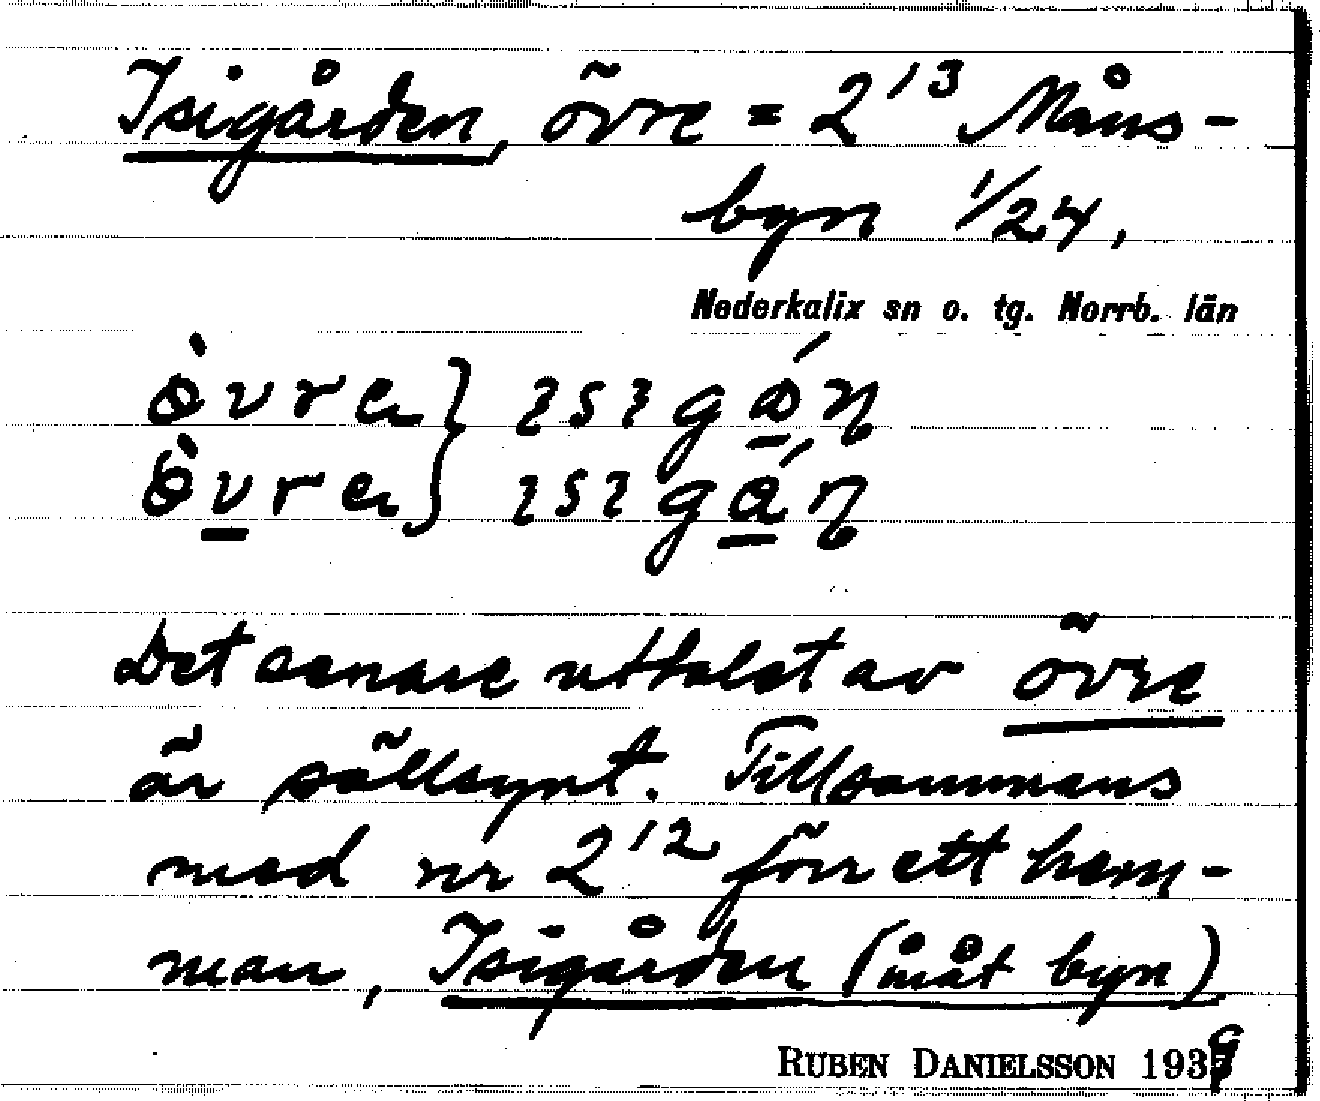 Isigården, övre = 2¹³ Måns-
byn 1/24,
Nederkalix sn o. tg. Norrb. län
Det senare uttalet av övre
är sällsynt. Tillsammans
med nr 2¹² förr ett hem-
man, Isigården (måt byn)
RUBEN DANIELSSON 1939